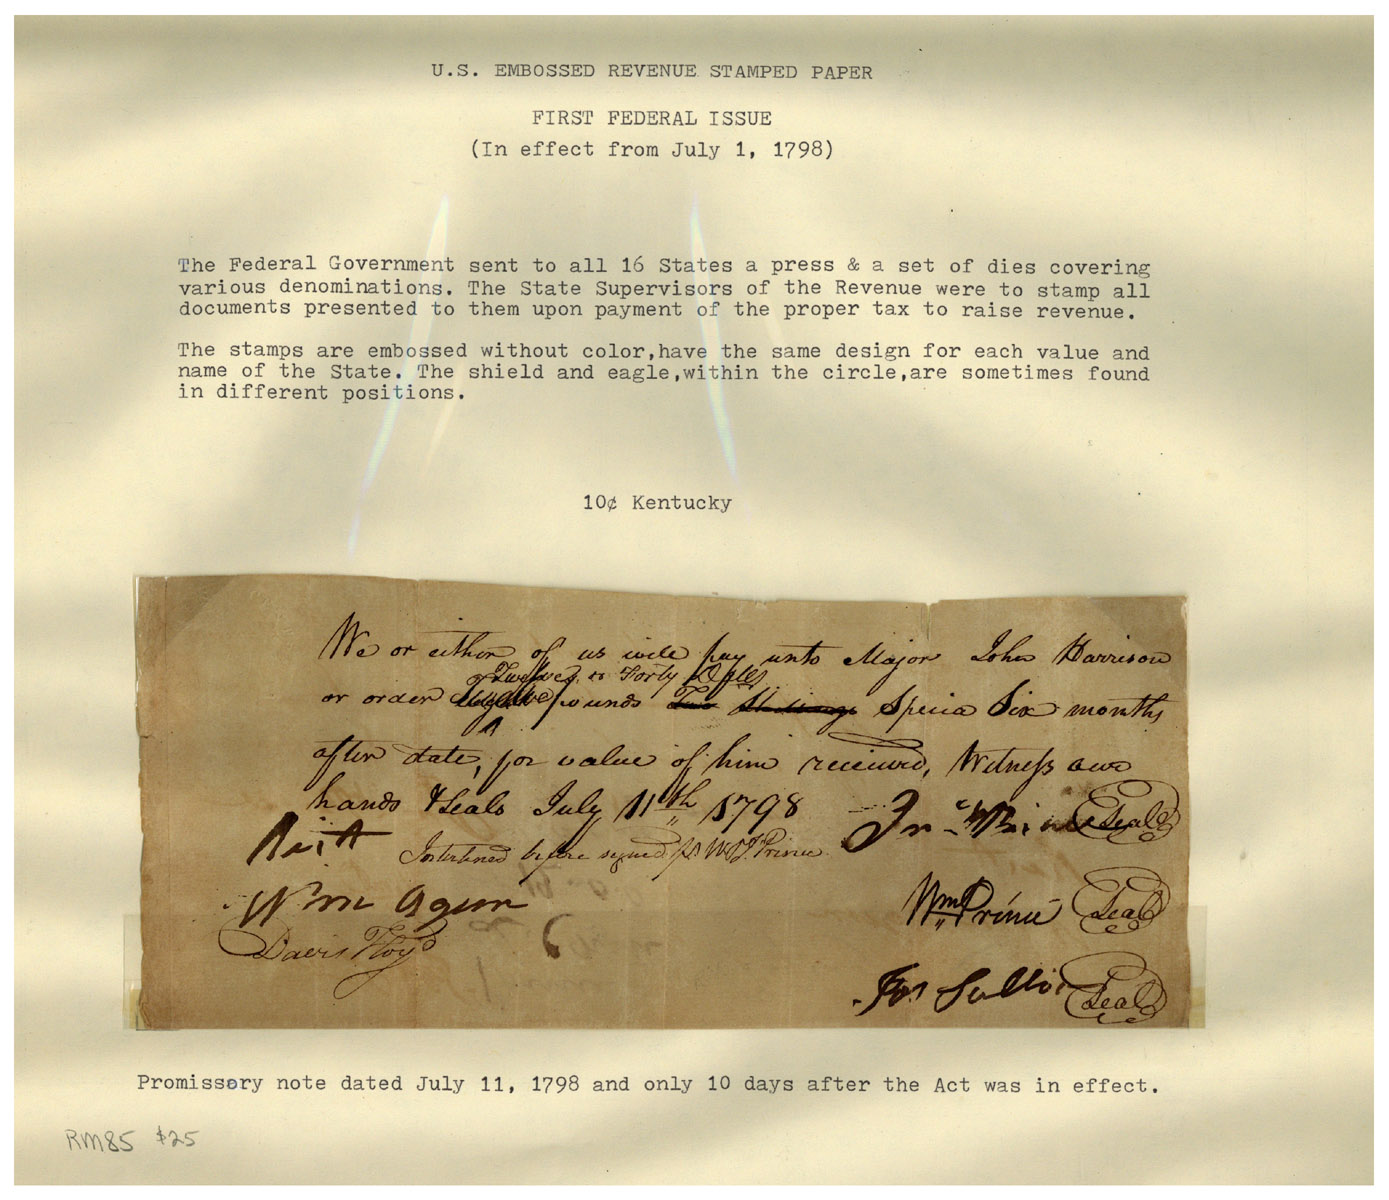 U.S. EMBOSSED REVENUE STAMPED PAPER
FIRST FEDERAL ISSUE
(In effect from July 1, 1798)
The Federal Government sent to all 16 States a press & a set of dies covering
various denominations. The State Supervisors of the Revenue were to stamp all
documents presented to them upon payment of the proper tax to raise revenue.
The stamps are embossed without color,have the same design for each value and
name of the State. The shield and eagle,within the circle,are sometimes found
in different positions.
10¢ Kentucky
We or either of us will pay unto Major John Harrison
Twelve Forty
or order pounds Two Shillings Specia Six months
after date, for value of him received, Witness our
hands & Seals July 11th 1798
Seal
Interlined before signed Wm Prince
Wm Agun
Wm Prince Seal
Davis Floyd
Seal
Promissory note dated July 11, 1798 and only 10 days after the Act was in effect.
RM85 $25